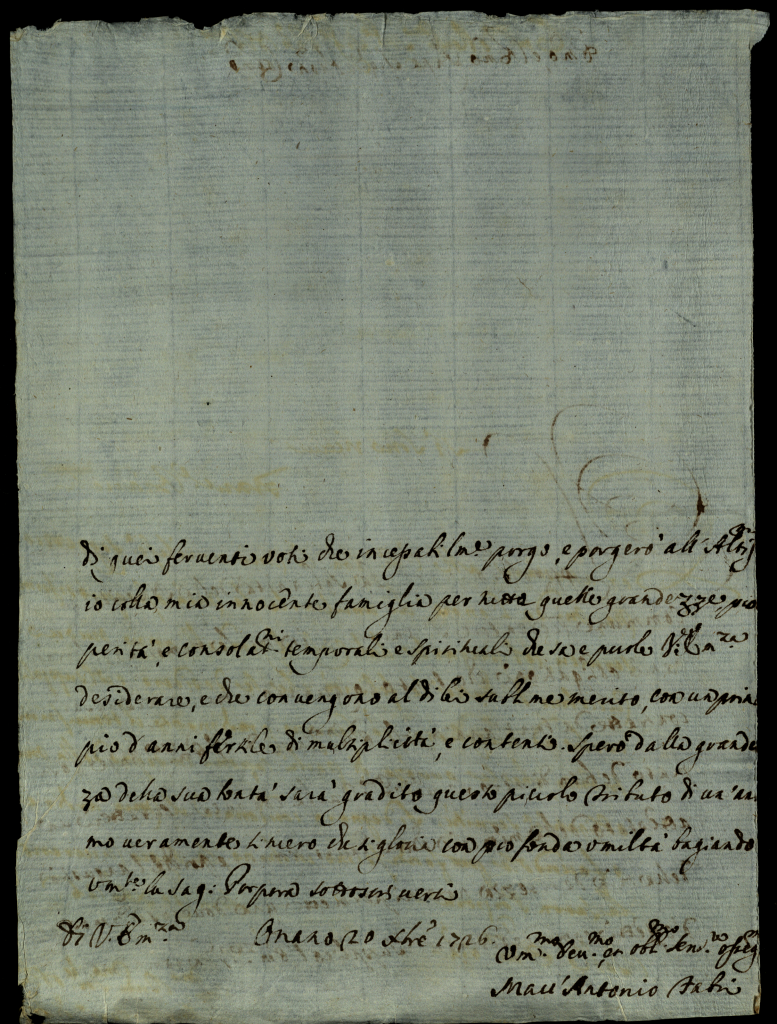 di quei ferventi voti che incessabilm.e porgo, e porgerò all'Altis
io colla mia innocente famiglia per tutte quelle grandezze, pro
perità, e consolat.ni temporali e spirituali che sa e puole V.E.m.za
desiderare, e che convengono al di lei sublime merito, con un prin
pio d'anni fertile di multiplicità, e contenti. Spero dalla grande
za della sua bontà sarà gradito questo picciolo tributo di un'an
mo veramente sincero che si gloria con profonda umiltà bagiando
um.te la sag: Porpora sottoscriverti
Di V.Em.za Onano 20 Xbre 1726
Um.mo Dev.mo et obb.mo Ser.re osseq
Marc'Antonio Fabri